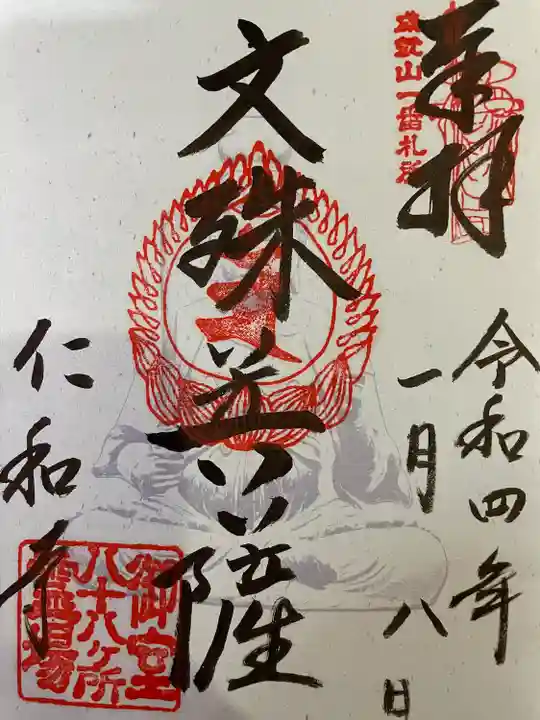 奉拝
令和四年
一月八日
文殊菩薩
仁和寺
御室
八十八ヶ所
霊場
山一番札所